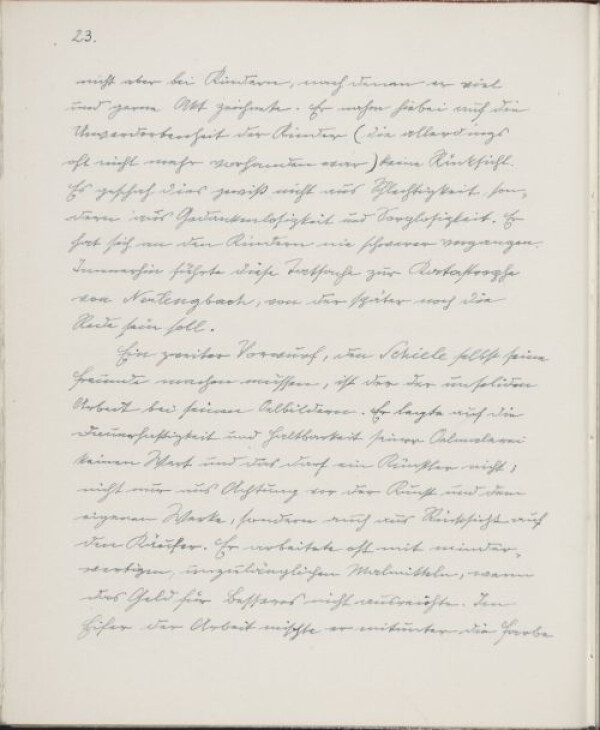 23.
nicht aber bei Kindern, nach denen er viel
und gerne Akt zeichnete. Er nahm hiebei auf die
Unverdorbenheit der Kinder (die allerdings
oft nicht mehr vorhanden war) keine Rücksicht.
Es geschah dies gewiß nicht aus Schlechtigkeit, son-
dern aus Gedankenlosigkeit und Sorglosigkeit. Er
hat sich an den Kindern nie schwerer vergangen.
Immerhin führte diese Tatsache zur Katastrophe
von Neulengbach, von der später noch die
Rede sein soll.
Ein zweiter Vorwurf, den Schiele selbst seine
Freunde machen müssen, ist der der unsoliden
Arbeit bei seinen Oelbildern. Er legte auf die
Dauerhaftigkeit und Haltbarkeit seiner Oelmalerei
keinen Wert und das darf ein Künstler nicht;
nicht nur aus Achtung vor der Kunst und dem
eigenen Werke, sondern auch aus Rücksicht auf
den Käufer. Er arbeitete oft mit minder-
wertigen, unzulänglichen Malmitteln, wenn
das Geld für Besseres nicht ausreichte. Im
Eifer der Arbeit mischte er mitunter die Farbe